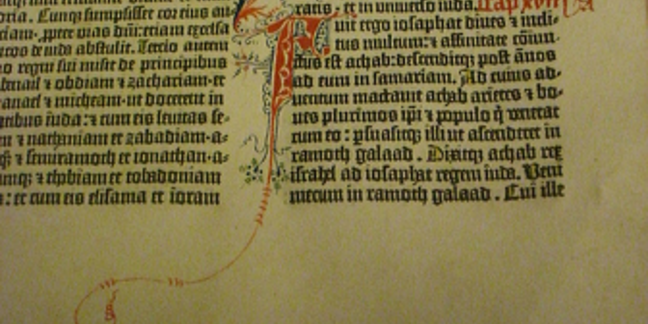 oria. Cunqz sumpsisset cor eius au-
ciam, ppter vias dni: etiam excelsa
cos de iuda abstulit. Tercio autem
o regni sui misit de principibus
benail z obdiam z zachariam et
anael z micheam ut docerent in
atibus iuda: z cum eis leuitas se-
n z nathaniam et zabadiam a-
qz z semiramoth et ionathan a-
amqz z thobiam et tobadoniam
s: et cum eis elisama et ioram
ranis et in universo iuda. Cap xviii
Fuit ergo iosaphat dives z incli-
tus multum: z affinitate coniun-
ctus est achab: descenditqz post annos
ad eum in samariam. Ad cuius ad-
ventum mactavit achab arietes z bo-
ves plurimos ipi z populo q venerat
cum eo: psuasitqz illi ut ascenderet in
ramoth galaad. Dixitqz achab rex
israhel ad iosaphat regem iuda. Veni
mecum in ramoth galaad. Cui ille